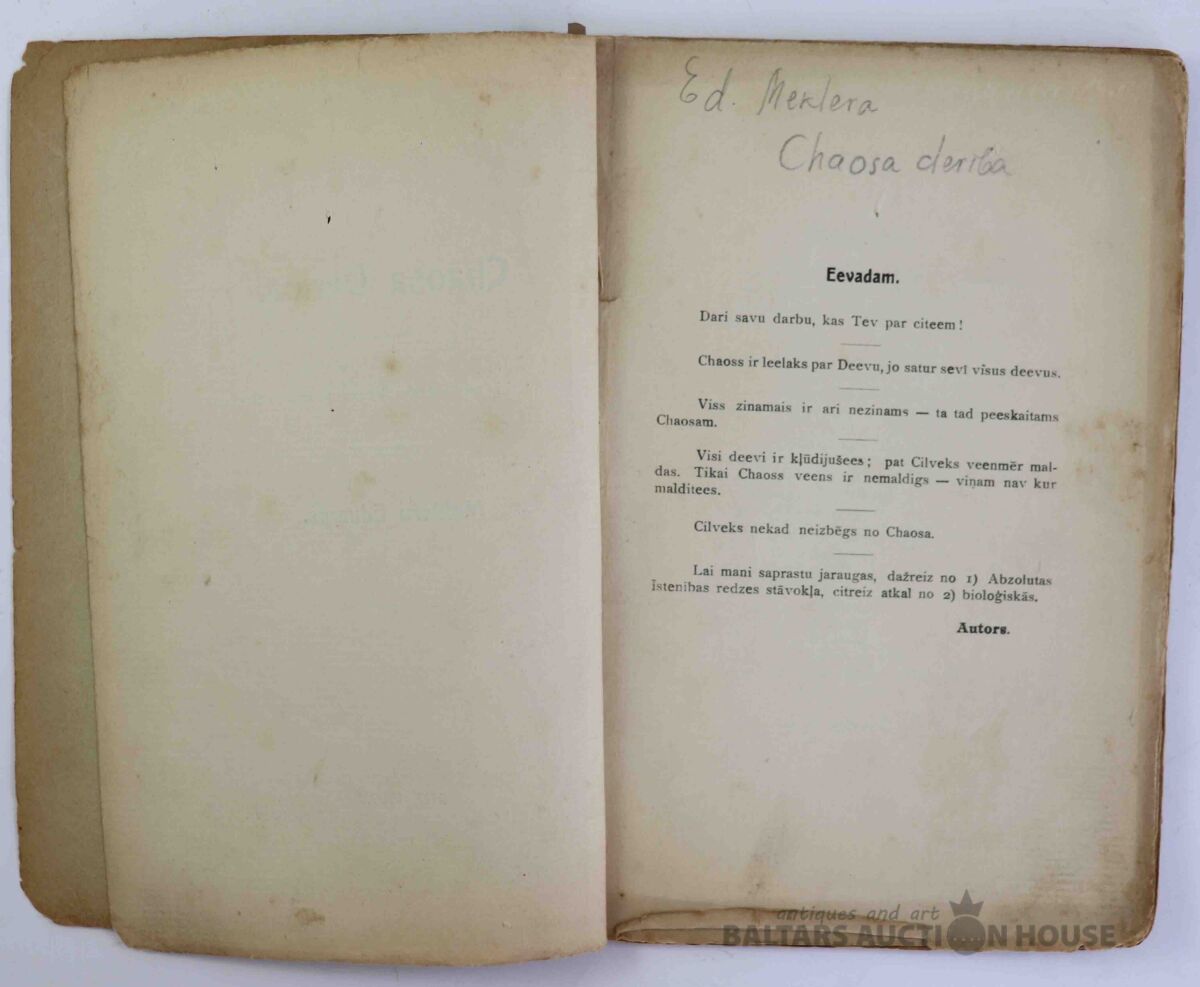 Ed. Meklera
Chaosa deriba
Eevadam.
Dari savu darbu, kas Tev par citeem!
Chaoss ir leelaks par Deevu, jo satur sevī visus deevus.
Viss zinamais ir ari nezinams — ta tad peeskaitams
Chaosam.
Visi deevi ir kļūdijušees; pat Cilveks veenmēr mal-
das. Tikai Chaoss veens ir nemaldigs — viņam nav kur
malditees.
Cilveks nekad neizbēgs no Chaosa.
Lai mani saprastu jaraugas, dažreiz no 1) Abzolutas
Īstenības redzes stāvokļa, citreiz atkal no 2) bioloģiskās.
Autors.
antiques and art
BALTARS AUCTION HOUSE